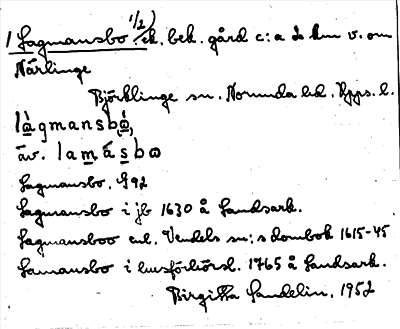 1 Lagmansbo 1/2) ek. bek. gård c:a 2 km v. om
Närlinge
Björklinge sn. Norunda hd. Upps. l.
làgmansbó,
äv. lamásbo
Lagmansbo, G 92
Lagmansbo i jb 1630 å Landsark.
Lagmansboo enl. Vendels sn:s dombok 1615-45
Lamansbo i husförhörsl. 1765 å Landsark.
Birgitta Sandelin. 1952